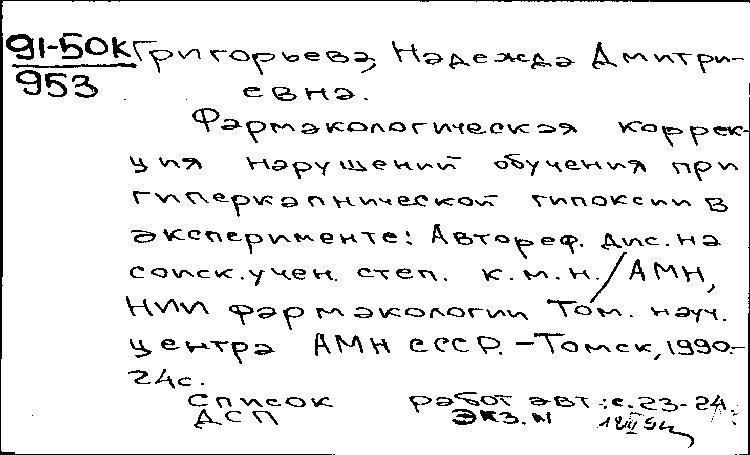 91-50К Григорьева, Надежда Дмитри-
953
евна.
Фармакологическая коррек-
ция нарушений обучения при
гиперкапнической гипоксии в
эксперименте: Автореф. дис. на
соиск. учен. степ. к.м.н. / АМН,
НИИ фармакологии Том. науч.
центра АМН СССР. - Томск, 1990.-
24с.
Список работ авт.: с. 23-24.
ДСП экз. N